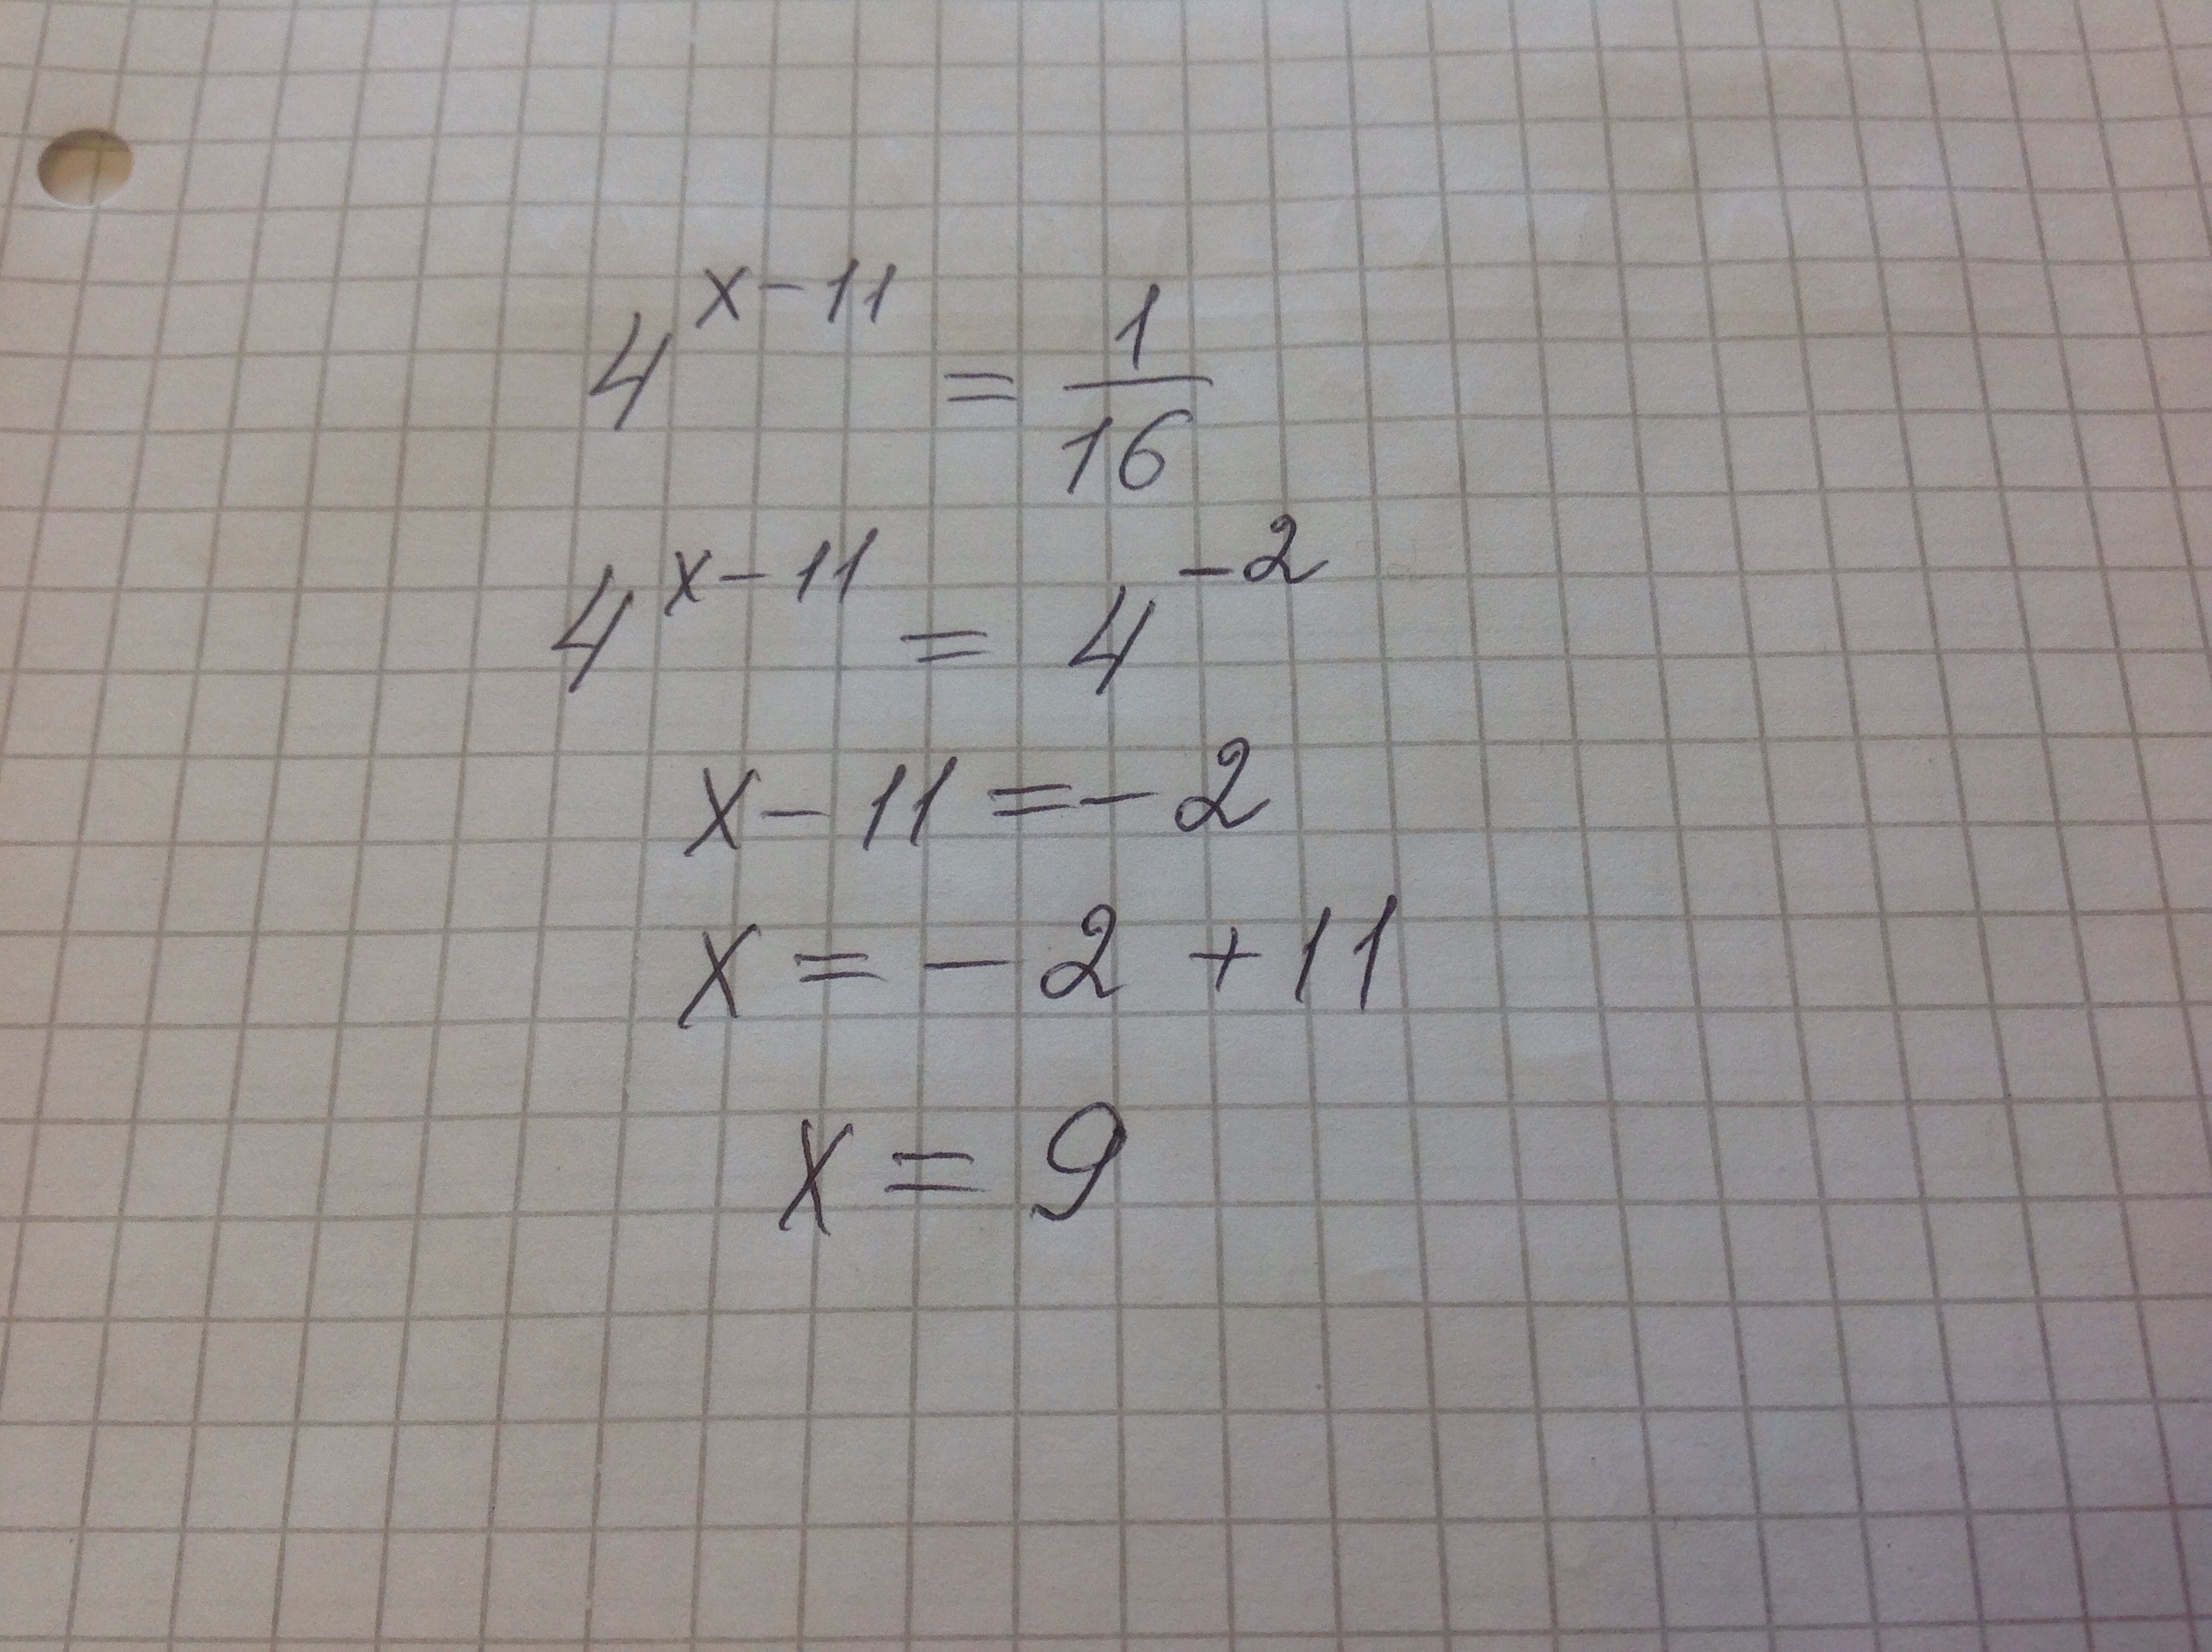 4^{x-11} = \frac{1}{16}
4^{x-11} = 4^{-2}
x - 11 = -2
x = -2 + 11
x = 9